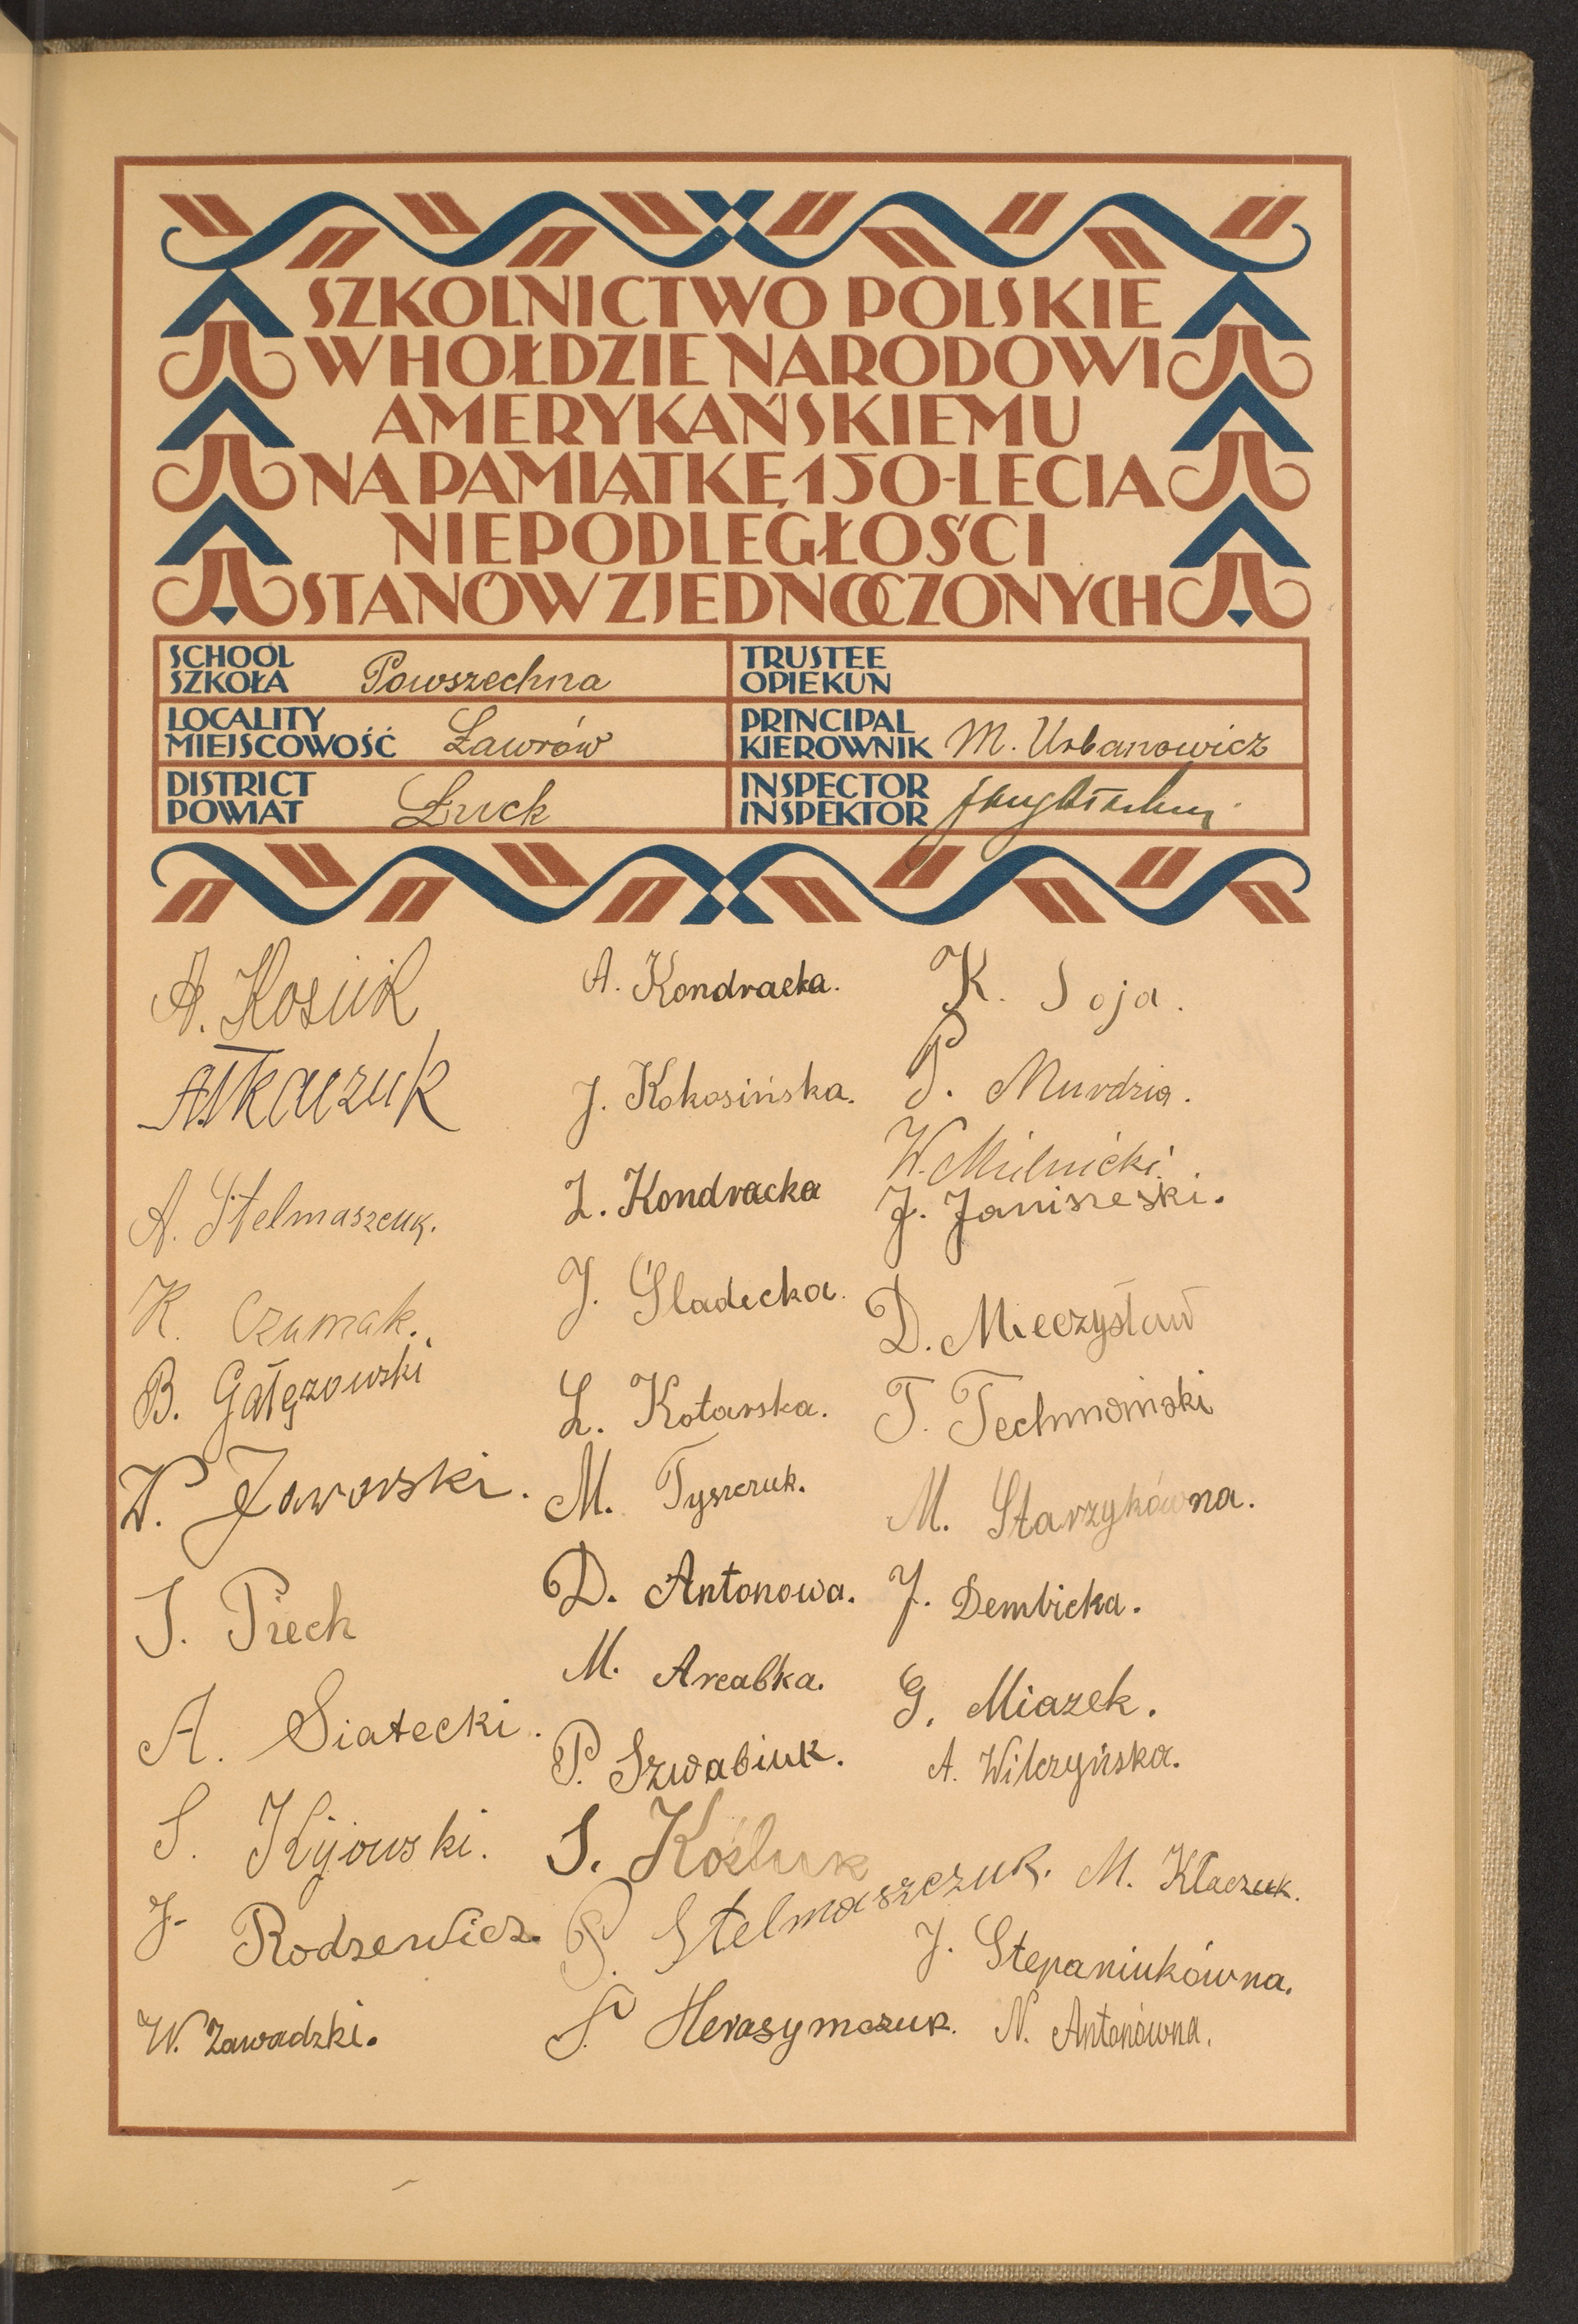 SZKOLNICTWO POLSKIE
W HOŁDZIE NARODOWI
AMERYKAŃSKIEMU
NA PAMIĄTKĘ 150-LECIA
NIEPODLEGŁOŚCI
STANÓW ZJEDNOCZONYCH
SCHOOL
SZKOŁA
Powszechna
TRUSTEE
OPIEKUN
LOCALITY
MIEJSCOWOŚĆ
Ławrów
PRINCIPAL
KIEROWNIK
M. Urbanowicz
DISTRICT
POWIAT
Łuck
INSPECTOR
INSPEKTOR
A. Kosiuk
A. Tkaczuk
A. Stelmaszcuk.
K. Czumak.
B. Gałęzowski
W. Jaworski.
J. Piech
A. Siatecki.
S. Kijowski.
J. Rodzewicz.
W. Zawadzki.
A. Kondracka.
J. Kokosińska.
L. Kondracka
J. Śladecka.
L. Kotarska.
M. Tyszczuk.
D. Antonowa.
M. Arcabka.
P. Szwabiuk.
S. Kośluk
P. Stelmaszczuk.
P. Herasymczuk.
K. Soja.
P. Murdzia.
W. Milnicki.
J. Janiszeski.
D. Mieczysław
T.
M. Starzykówna.
J. Dembicka.
G. Miazek.
A. Wilczyńska.
M. Kłaczuk.
J. Stepaniukówna.
N. Antonówna.